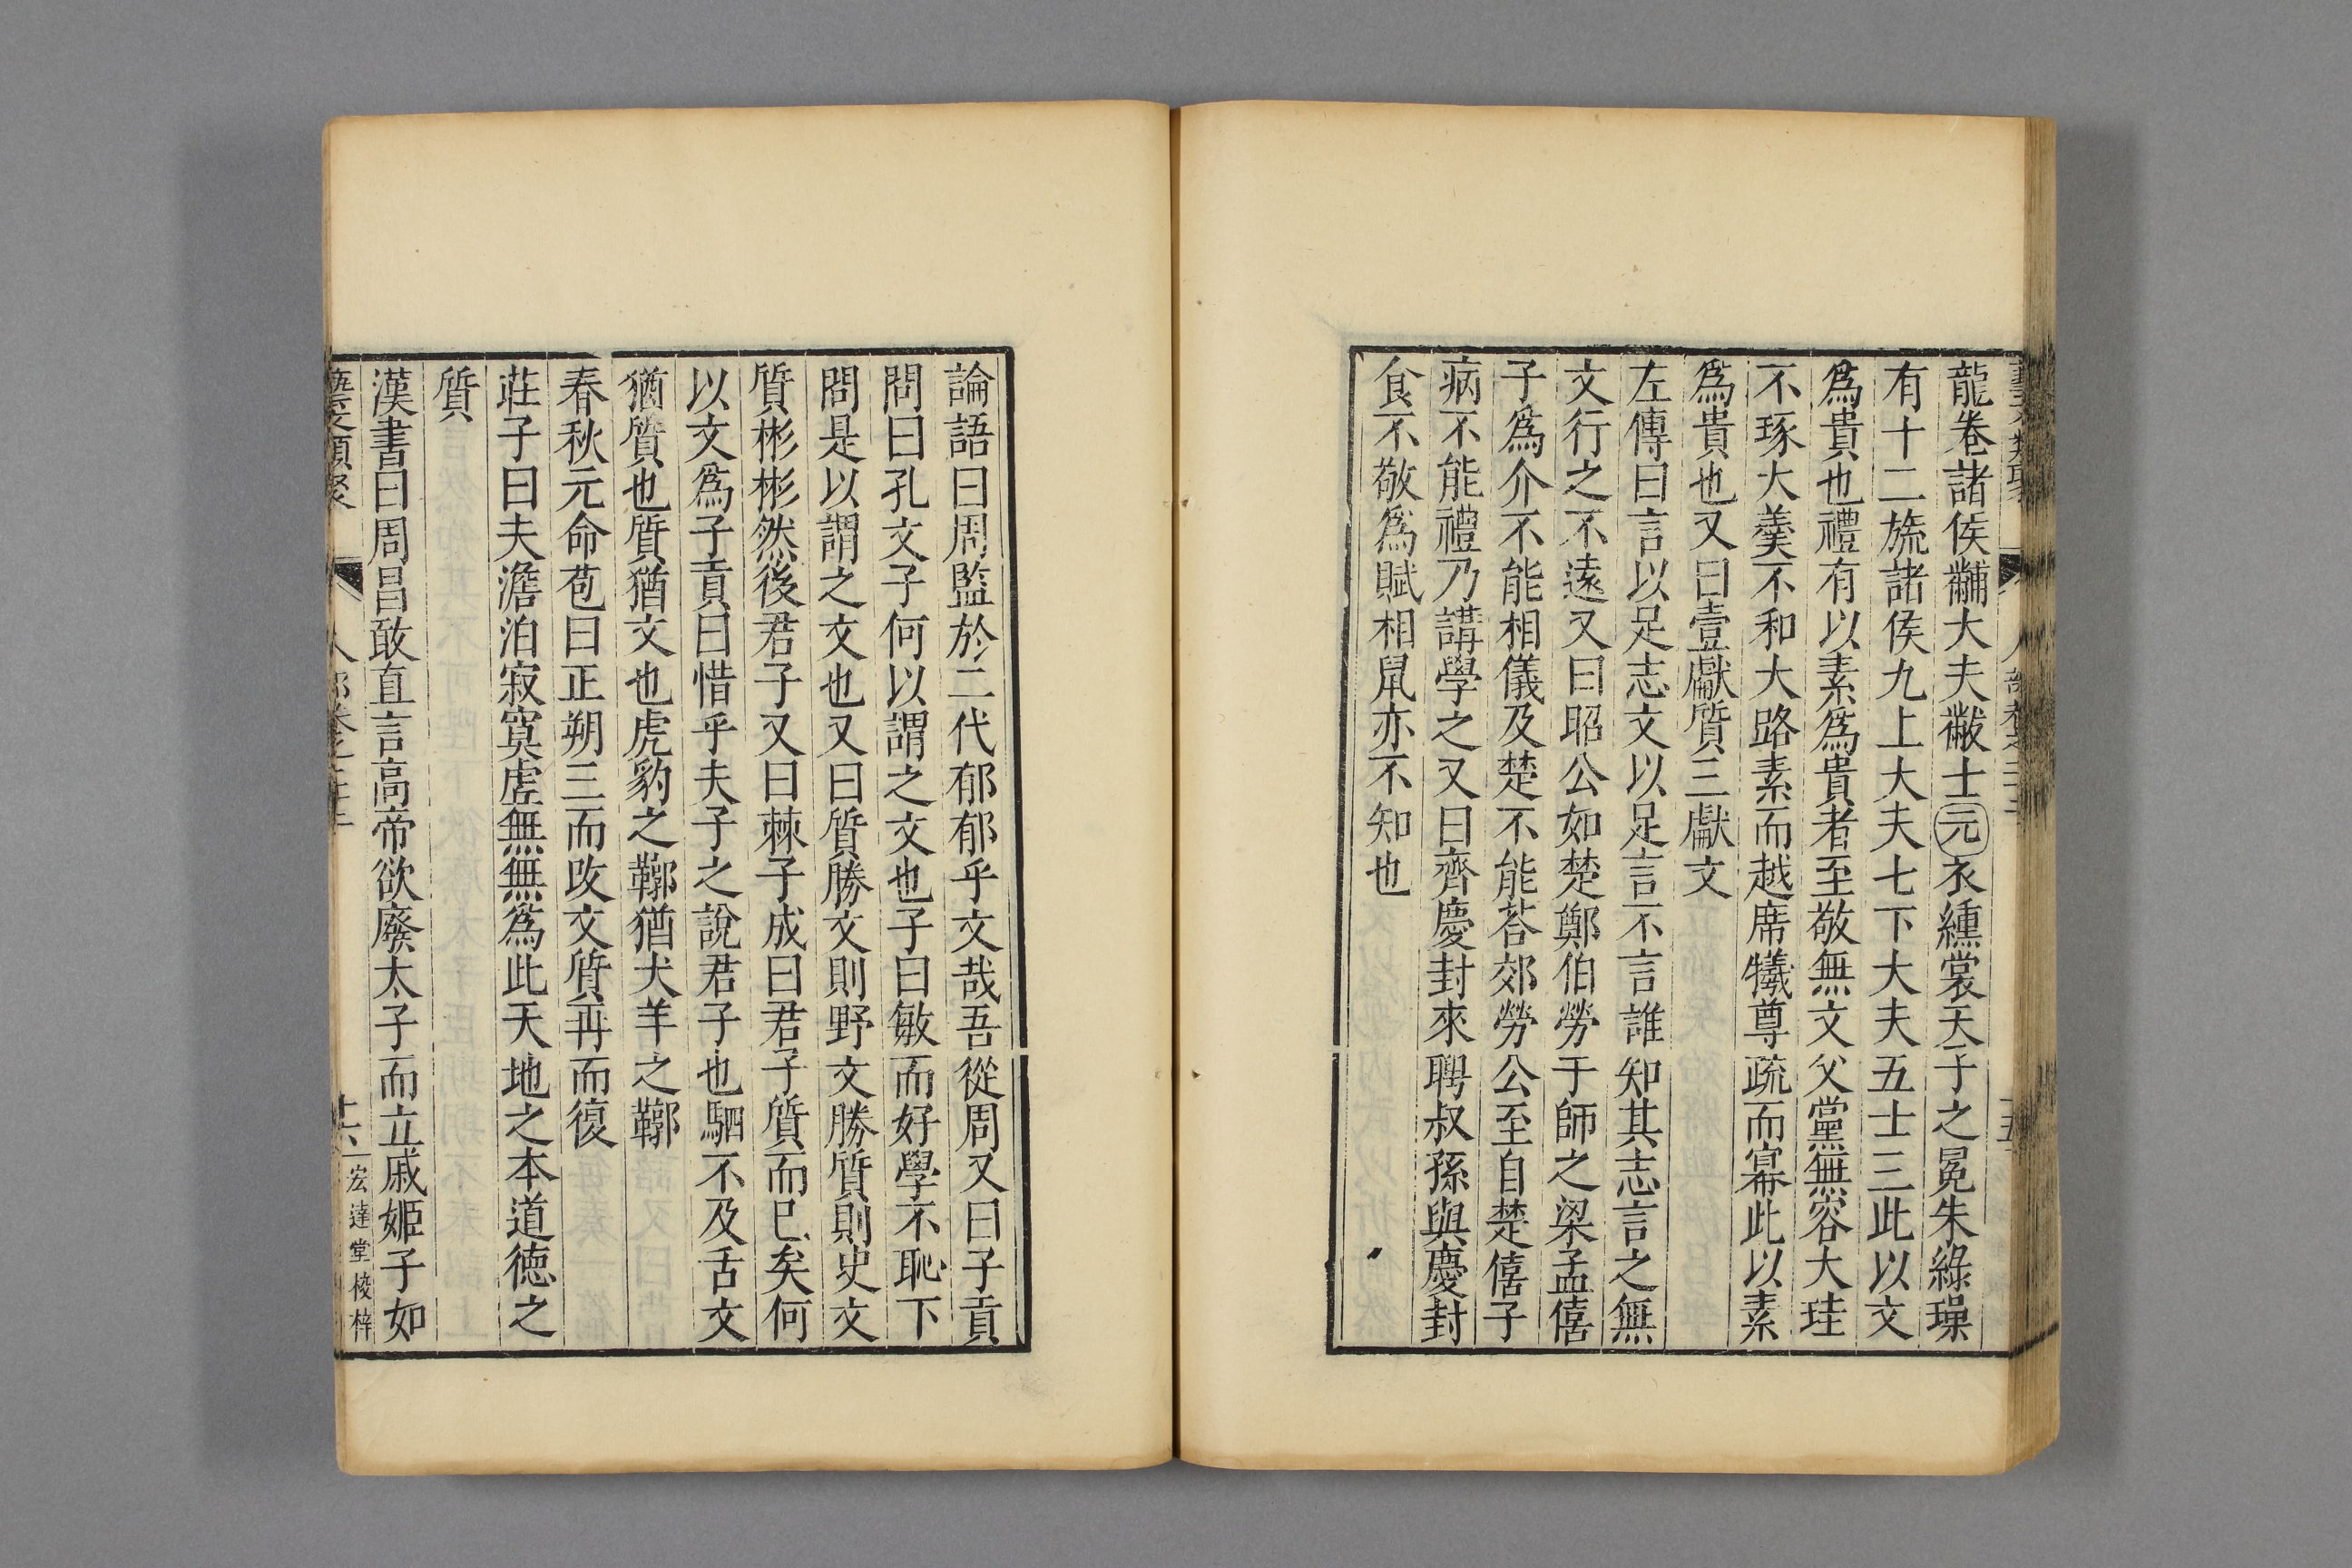 龍卷諸侯黼大夫黻士元衣纁裳天子之冕朱綠璪
有十二旒諸侯九上大夫七下大夫五士三此以文
爲貴也禮有以素爲貴者至敬無文父黨無容大珪
不琢大羹不和大路素而越席犧尊疏而冪此以素
爲貴也又曰壹獻質三獻文
左傳曰言以足志文以足言不言誰知其志言之無
文行之不遠又曰昭公如楚鄭伯勞于師之梁孟僖
子爲介不能相儀及楚不能荅郊勞公至自楚僖子
病不能禮乃講學之又曰齊慶封來聘叔孫與慶封
食不敬爲賦相鼠亦不知也
論語曰周監於二代郁郁乎文哉吾從周又曰子貢
問曰孔文子何以謂之文也子曰敏而好學不恥下
問是以謂之文也又曰質勝文則野文勝質則史文
質彬彬然後君子又曰棘子成曰君子質而已矣何
以文爲子貢曰惜乎夫子之說君子也駟不及舌文
猶質也質猶文也虎豹之鞹猶犬羊之鞹
春秋元命苞曰正朔三而改文質再而復
莊子曰夫澹泊寂寞虛無無爲此天地之本道德之
質
漢書曰周昌敢直言高帝欲廢太子而立戚姬子如
藝文類聚 人部卷之二十二 十六 宏達堂校梓